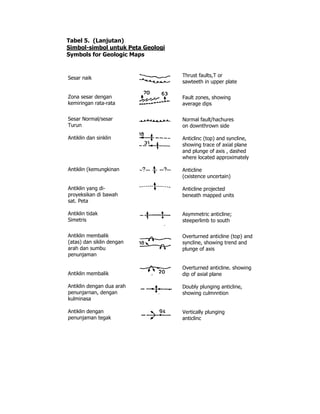 Tabel 5. (Lanjutan)
Simbol-simbol untuk Peta Geologi
Symbols for Geologic Maps
Sesar naik
Thrust faults,T or
sawteeth in upper plate
Zona sesar dengan
kemiringan rata-rata
70 63
Fault zones, showing
average dips
Sesar Normal/sesar
Turun
Normal fault/hachures
on downthrown side
Antiklin dan sinklin
18
31
Anticlinc (top) and syncline,
showing trace of axial plane
and plunge of axis , dashed
where located approximately
Antiklin (kemungkinan
-?- -?-
Anticline
(cxistence uncertain)
Antiklin yang di-
proyeksikan di bawah
sat. Peta
Anticline projected
beneath mapped units
Antiklin tidak
Simetris
Asymmetric anticline;
steeperlimb to south
Antiklin membalik
(atas) dan siklin dengan
arah dan sumbu
penunjaman
18
Overturned anticline (top) and
syncline, showing trend and
plunge of axis
Antiklin membalik
20
Overturned anticline. showing
dip of axial plane
Antiklin dengan dua arah
penunjarnan, dengan
kulminasa
Doubly plunging anticline,
showing culmnntion
Antiklin dengan
penunjaman tegak
94
Vertically plunging
anticlinc